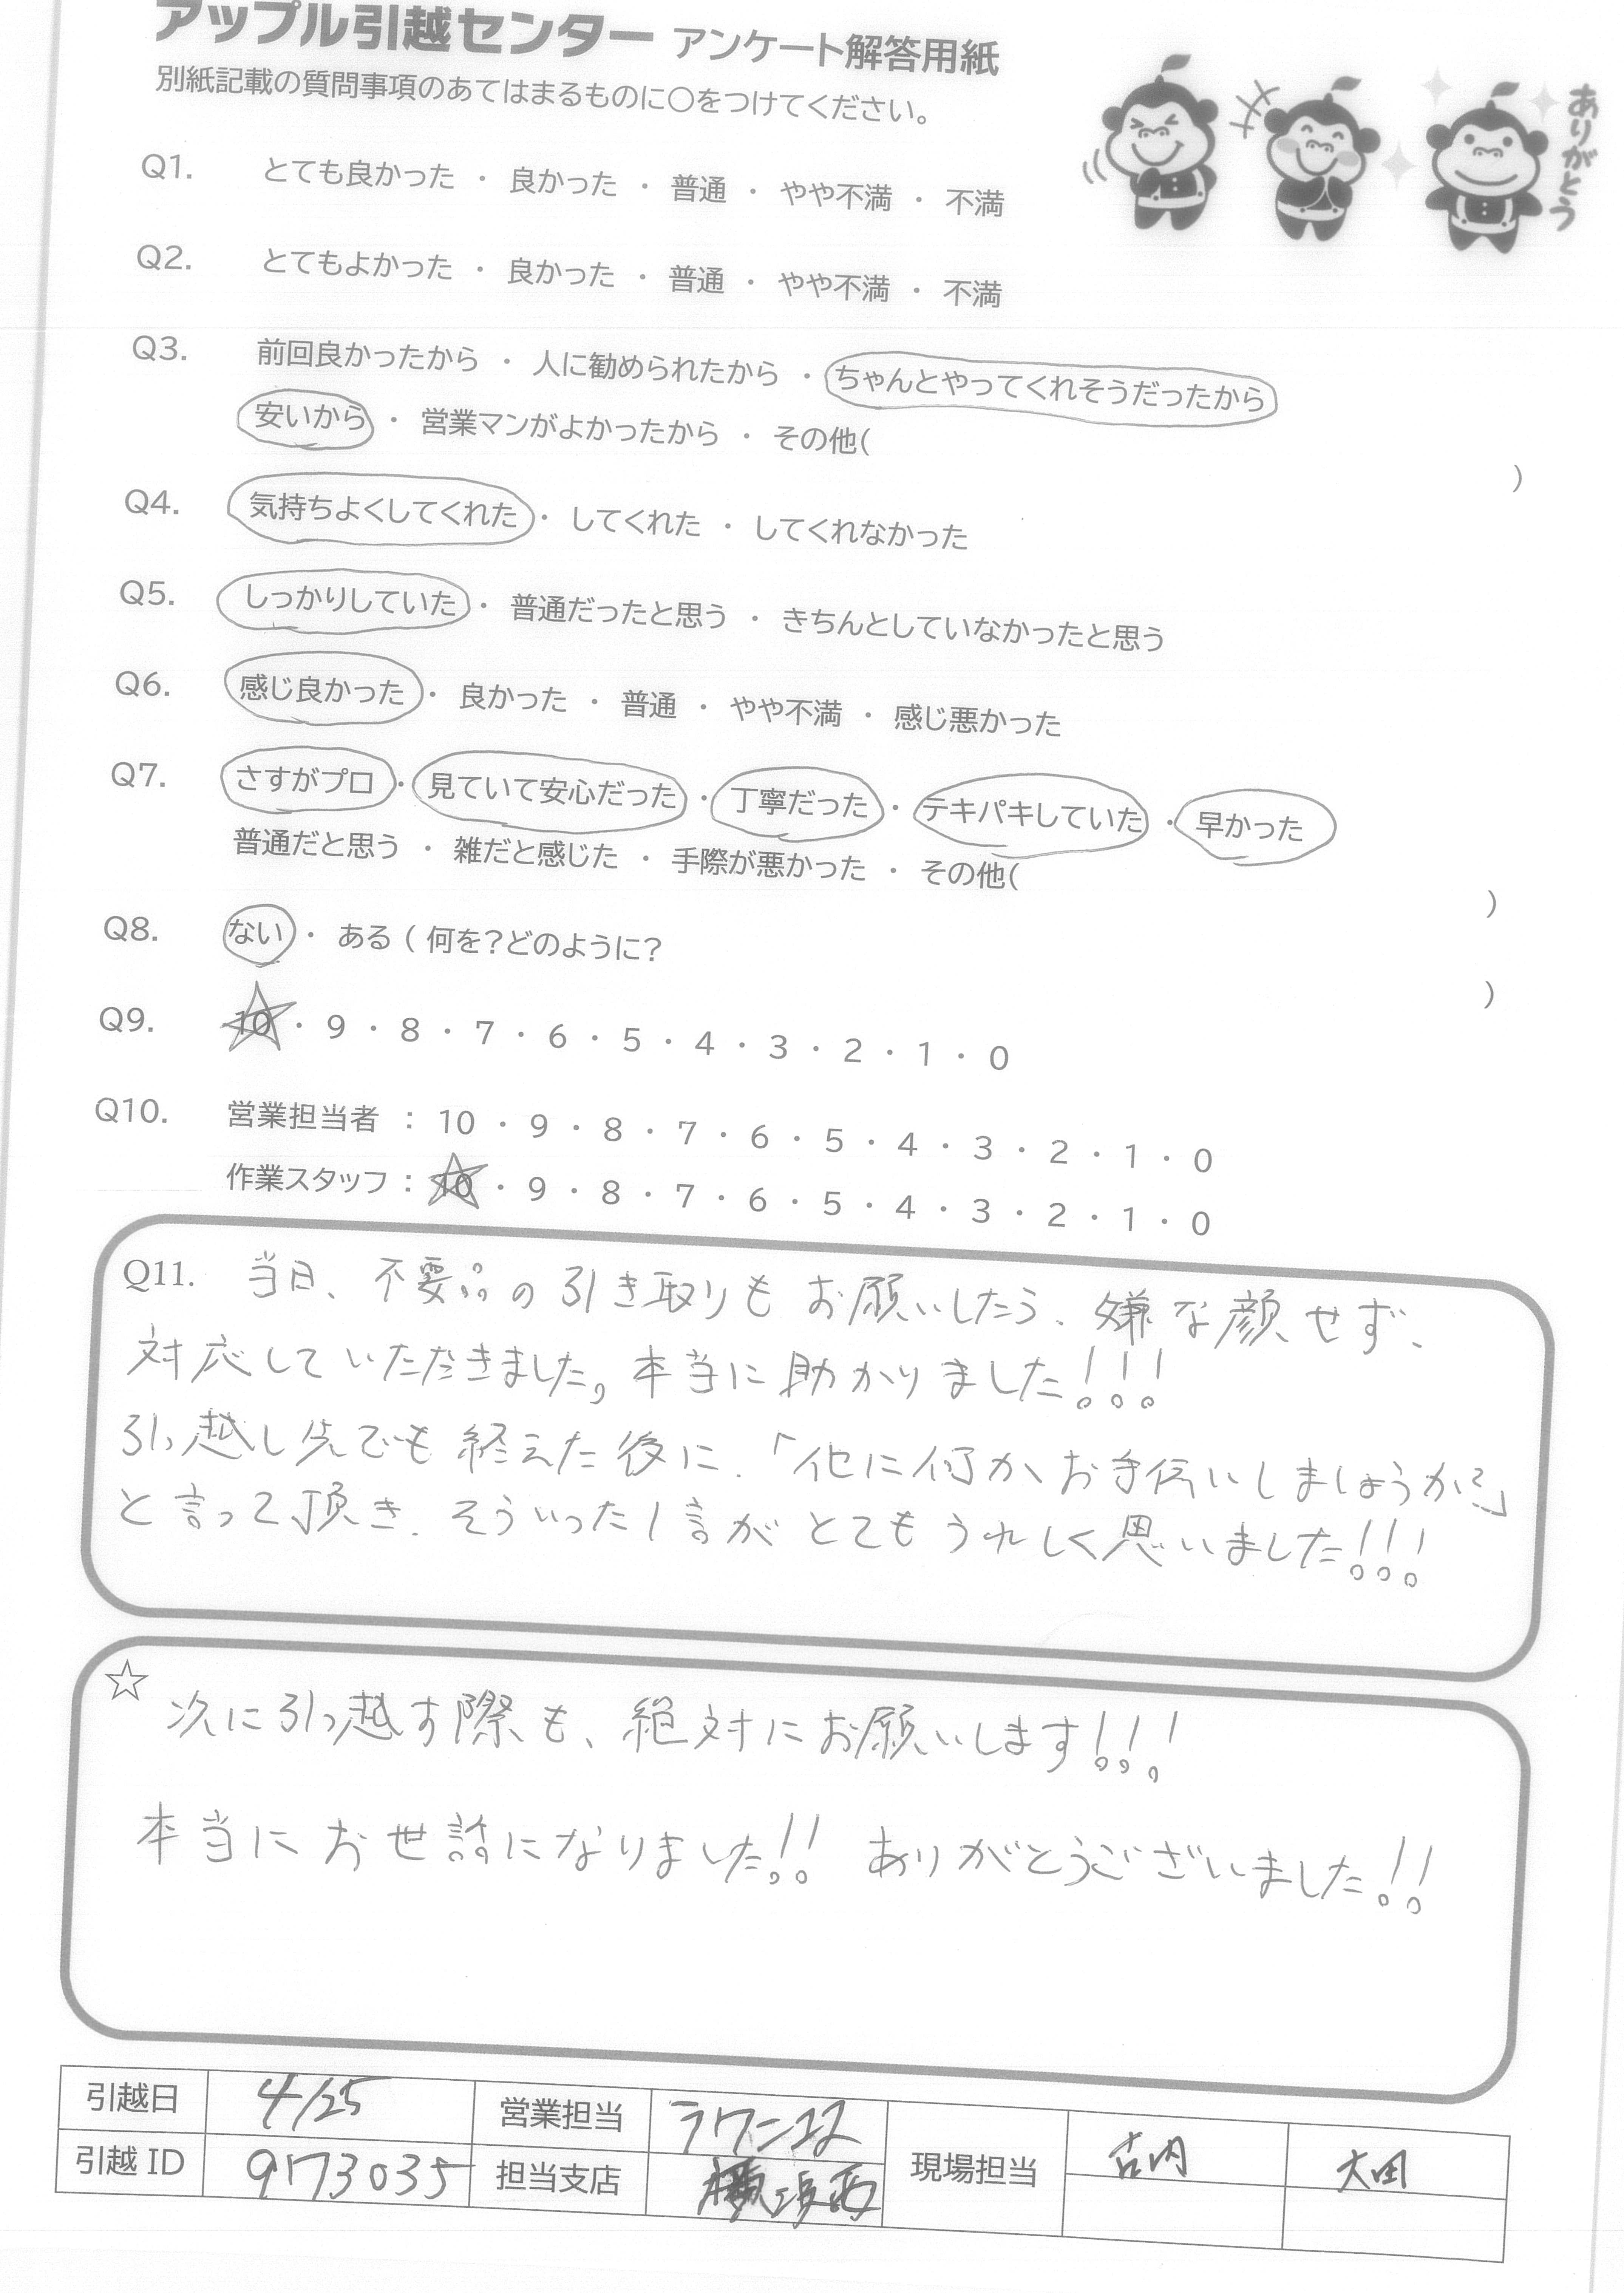 アップル引越センター アンケート解答用紙
別紙記載の質問事項のあてはまるものに〇をつけてください。
ありがとう
Q1. とても良かった ・ 良かった ・ 普通 ・ やや不満 ・ 不満
Q2. とてもよかった ・ 良かった ・ 普通 ・ やや不満 ・ 不満
Q3. 前回良かったから ・ 人に勧められたから ・ ちゃんとやってくれそうだったから
安いから ・ 営業マンがよかったから ・ その他( )
Q4. 気持ちよくしてくれた ・ してくれた ・ してくれなかった
Q5. しっかりしていた ・ 普通だったと思う ・ きちんとしていなかったと思う
Q6. 感じ良かった ・ 良かった ・ 普通 ・ やや不満 ・ 感じ悪かった
Q7. さすがプロ ・ 見ていて安心だった ・ 丁寧だった ・ テキパキしていた ・ 早かった
普通だと思う ・ 雑だと感じた ・ 手際が悪かった ・ その他( )
Q8. ない ・ ある ( 何を?どのように? )
Q9. 10 ・ 9 ・ 8 ・ 7 ・ 6 ・ 5 ・ 4 ・ 3 ・ 2 ・ 1 ・ 0
Q10. 営業担当者 : 10 ・ 9 ・ 8 ・ 7 ・ 6 ・ 5 ・ 4 ・ 3 ・ 2 ・ 1 ・ 0
作業スタッフ : 10 ・ 9 ・ 8 ・ 7 ・ 6 ・ 5 ・ 4 ・ 3 ・ 2 ・ 1 ・ 0
Q11. 当日、不要品の引き取りもお願いしたら、嫌な顔せず、
対応していただきました。本当に助かりました!!!
引っ越し先でも終えた後に、「他に何かお手伝いしましょうか?」
と言って頂き、そういった1言がとてもうれしく思いました!!!
☆ 次に引っ越す際も、絶対にお願いします!!!
本当にお世話になりました!! ありがとうございました!!
引越日 4/25 営業担当 現場担当 古内 大田
引越 ID 9173035 担当支店 横浜西